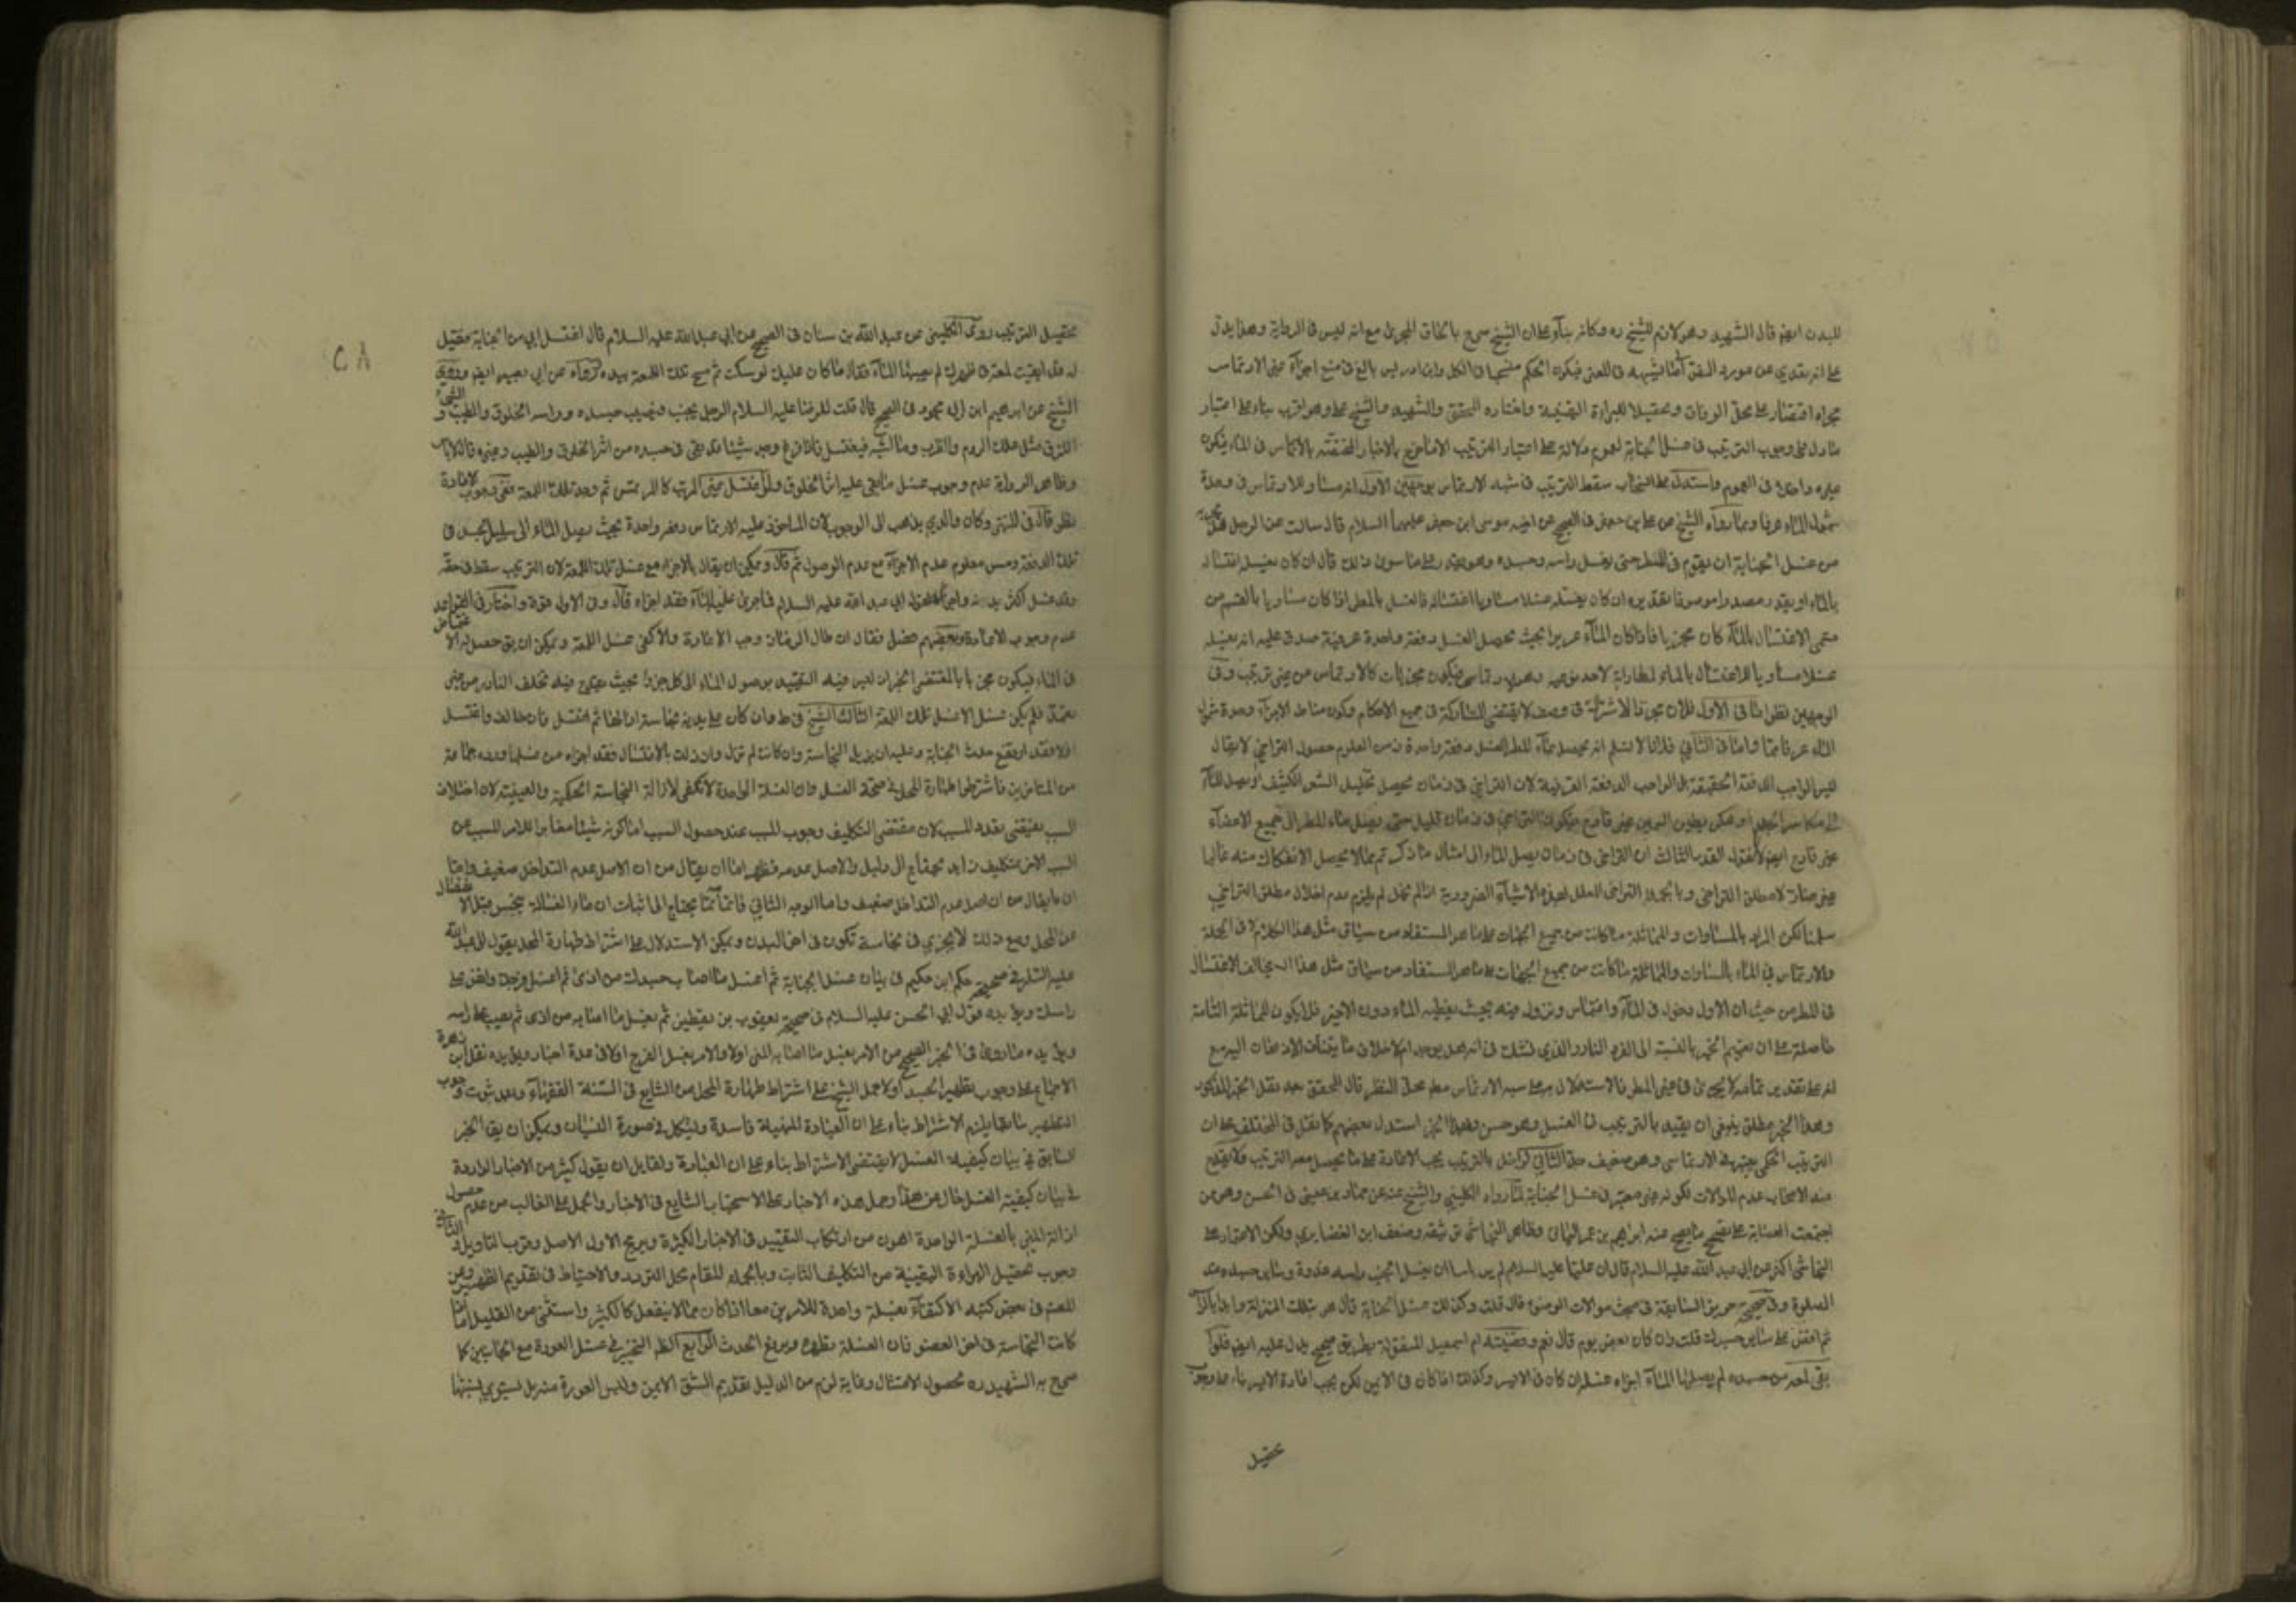 للبدن ايضا قال الشهيد وهو لازم للشيخ ره وكانه بناء على ان الشيخ صرح بالحاق المجرى مع انه ليس في الرواية وهذا يدل
على انه يتعدى عن مورد النص الى ما يشبهه في المعنى فيكون الحكم منسحبا في الكل وابن ادريس بالغ في منع اجزاء غير الارتماس
مجراه اقتصارا على محل الوفاق وتحصيلا للبراءة اليقينية واختاره المحقق والشهيد مال الشيخ على وهو اقرب بناء على اعتبار
ما دل على وجوب الترتيب في غسل الجنابة لعموم دلالة على اعتبار الترتيب الا ما خرج بالاخبار المختصة بالارتماس في الماء فيكون
غيره داخلا في العموم واستدل على انسحاب سقوط الترتيب في شبه الارتماس بوجهين الاول انه مساو للارتماس في وحدة
شمول الماء عرفا وبما رواه الشيخ عن علي بن جعفر في الصحيح عن اخيه موسى ابن جعفر عليهما السلام قال سالت عن الرجل هل يجزيه
من غسل الجنابة ان يقوم في المطر حتى يغسل راسه وجسده وهو يقدر على ما سوى ذلك قال ان كان يغسله اغتساله
بالماء او يقدر مصدرا موصوفا تقديره ان كان يغسله غسلا مساويا اغتساله فالغسل بالمطر اذا كان مساويا بالقسم من
الاغتسال بالماء كان مجزيا فاذا كان الماء غزيرا بحيث يحصل الغسل دفعة واحدة عرفية صدق عليه انه يغسله
غسلا مساويا للاغتسال بالماء لمطاراته لاحد نوعيه وهو الارتماس فيكون مجزيا كالارتماس من غير ترتيب وفي
الوجهين نظر اما في الاول فلان مجرد الاشتراك في وصف لا يقتضي المشاركة في جميع الاحكام وكون مناط الاجزاء وحدة شمول
الماء عرفا واما في الثاني فلانا لا نسلم انه يحصل بماء المطر الغسل دفعة واحدة ومن المعلوم حصول التراخي لا يقال
ليس الواجب الدفعة الحقيقية بل الواجب الدفعة العرفية لان التراخي في زمان يحصل تخليل الشعر الكثيف او يصل الماء
غير قادح فيكون التراخي في زمان قليل حتى يصل ماء المطر الى جميع الاعضاء
غير قادح ايضا لانا نقول القدر الثالث ان التراخي في زمان يصل الماء الى امثال ما ذكر ثم مما لا يحصل الانفكاك منه غالبا
غير ضار لا مطلق التراخي وبالجملة التراخي المعلل لهذه الاشياء الضرورية اذا لم يخل لم يلزم عدم اخلال مطلق التراخي
سلمنا لكن المراد بالمساوات والمماثلة ما كانت من جميع الجهات على ما هو المستفاد من سياق مثل هذا الكلام لا في الجملة
والارتماس في الماء بالمساوات والمماثلة ما كانت من جميع الجهات على ما هو المستفاد من سياق مثل هذا الاغتسال
في المطر من حيث ان الاول دخول في الماء وانغماس ونزول فيه بحيث يغطيه الماء دون الاخير فلا يكون المماثلة التامة
حاصلة على ان تعميم الخبر بالنسبة الى الفرد النادر الذي نشك في انه هل يوجد ام لا خلاف ما يتبادر الاذهان اليه مع
انه على تقدير تمامه لا يجري في غير المطر فالاستدلال به على شبه الارتماس مطلقا محل النظر قال المحقق بعد نقل الخبر المذكور
وهذا الخبر مطلق ينبغي ان يقيد بالترتيب في الغسل وهو حسن وبهذا الخبر استدل بعضهم كما نقل في المختلف على ان
الترتيب الحكمي يعتبر في الارتماس وهو ضعيف جدا الثاني لو اخل بالترتيب يجب الاعادة على ما يحصل معه الترتيب فلا يقدح
عند الاصحاب عدم الموالات لكونه غير معتبر في غسل الجنابة لما رواه الكليني والشيخ عنه عن حماد بن عيسى في الحسن وهو ممن
اجتمعت العصابة على تصحيح ما يصح عنه ابراهيم بن عمر اليماني وظاهر النجاشي توثيقه وضعف ابن الغضايري ولكن الاعتماد على
النجاشي اكثر عن ابي عبد الله عليه السلام قال ان عليا عليه السلام لم ير باسا ان يغسل الجنب راسه غدوة وساير جسده عند
الصلوة وفي صحيحة حريز السابقة في مبحث موالات الوضوء قال قلت وكذلك غسل الجنابة قال هو بتلك المنزلة وابدا بالراس
ثم افض على ساير جسدك قلت وان كان بعض يوم قال نعم وقضيته ام اسمعيل المنقولة بطريق صحيح يدل عليه ايضا فلو
بقى لمعة من جسده لم يصل لها الماء اجزاه غسلها ان كان في الايسر وكذلك اذا كان في الايمن لكن يجب اعادة الايسر بناء على وجوب
تحصيل
تحصيل الترتيب روى الكليني عن عبد الله بن سنان في الصحيح عن ابي عبد الله عليه السلام قال اغتسل ابي من الجنابة فقيل
له قد ابقيت لمعة في ظهرك لم يصبها الماء فقال ما كان عليك لو سكت ثم مسح تلك اللمعة بيده ورواه عن ابي بصير ايضا وروى
الشيخ عن ابراهيم ابن ابي محمود في الصحيح قال قلت للرضا عليه السلام الرجل يجنب فيصيب جسده وراسه الخلوق والطيب والشيء
اللزق مثل علك الروم والطرب وما اشبهه فيغتسل فاذا فرغ وجد شيئا قد بقى في جسده من اثر الخلوق والطيب وغيره قال لا باس
وظاهر الرواية عدم وجوب غسل ما بقى عليه اثر الخلوق ولو اغتسل غير المرتب كالمرتمس ثم وجد تلك اللمعة ففي وجوب الاعادة
نظر قال في المنتهى وكان والدي يذهب الى الوجوب لان الماخوذ عليه الارتماس دفعة واحدة بحيث يصل الماء الى ساير الجسد في
تلك الدفعة ومن المعلوم عدم الاجزاء مع عدم الوصول ثم قال ويمكن ان يقال بالاجزاء مع غسل تلك اللمعة لان الترتيب سقط في حقه
وقد غسل اكثر بدنه فاجزاه لقول ابي عبد الله عليه السلام فما جرى عليه الماء فقد اجزاه قال وفي الاول قوة واختار في القواعد
عدم وجوب الاعادة وبعضهم فصل فقال ان طال الزمان وجب الاعادة والا كفى غسل اللمعة ويمكن ان يق حصل له الاغتماس
في الماء فيكون مجزيا بالمقتضى الخبر اذ ليس فيه التقييد بوصول الماء الى كل جزء بحيث يخرج فيه تخلف النادر من غير
تعمد فلم يكن غسل الا غسل تلك اللمعة الثالث الشيخ في ط وان كان على بدنه نجاسة ازالها ثم اغتسل فان خالف واغتسل
اولا فقد ارتفع حدث الجنابة وعليه ان يزيل النجاسة وان كانت لم تزل وان زالت بالاغتسال فقد اجزاه عن غسلها ورده جماعة
من المتاخرين فاشترطوا طهارة المحل في صحة الغسل وان الغسلة الواحدة لا تكفي لازالة النجاسة الحكمية والعينية لان اختلاف
السبب يقتضي تعدد المسبب لان مقتضى التكليف وجوب المسبب عند حصول السبب اما كونه شيئا مغايرا للامر المسبب عن
السبب الاخر فتكليف زايد محتاج الى دليل والاصل عدمه فظهر اما ان يقال من ان الاصل عدم التداخل ضعيف واما
ان ما يقال من ان اصل عدم التداخل ضعيف واما الوجه الثاني فانما يتم يحتاج الى اثبات ان ماء الغسالة ينجس قبل الانفصال
عن المحل ومع ذلك لا يجرى في نجاسة تكون في اخر البدن ويمكن الاستدلال على اشتراط طهارة المحل بقول ابي عبد الله
عليه السلام في صحيحة حكم ابن حكيم في بيان غسل الجنابة ثم اغسل ما اصاب جسدك من اذى ثم اغسل فرجك وافض على
راسك وقول ابي الحسن عليه السلام في صحيحة يعقوب بن يقطين ثم يغسل ما اصابه من اذى ثم يصب على راسه
ويؤيده ما روى في الخبر الصحيح من الامر بغسل ما اصابه المني اولا والامر بغسل الفرج اولا في عدة اخبار ويؤيده نقل ابن زهرة
الاجماع على وجوب تطهير الجسد اولا حمل الشيخ على اشتراط طهارة المحل من الشايع في السنة الفقهاء وبعد ثبوت وجوب
التطهير سابقا يلزم الاشتراط بناء على ان العبادة المنهية فاسدة ويشكل في صورة النسيان ويمكن ان يق الخبر
السابق في بيان كيفية الغسل لا يقتضي الاشتراط بناء على ان العبادة ولقايل ان يقول كثير من الاخبار الواردة
في بيان كيفية الغسل خال عن هذا وحمل هذه الاخبار على الاستحباب الشايع في الاخبار والحمل على الغالب من عدم حصول
ازالة المني بالغسلة الواحدة اهون من ارتكاب التقييد في الاخبار الكثيرة ويرجح الاول الاصل وقرب التاويل الثاني
وجوب تحصيل البراءة اليقينية من التكليف الثابت وبالجملة المقام محل التردد والاحتياط في تقديم التطهير وعن
المصنف في بعض كتبه الاكتفاء بغسلة واحدة للامرين معا اذا كان مما لا ينفعل كالكثير واستثنى من القليل اذا
كانت النجاسة في اخر العضو فان الغسلة تطهره ويرفع الحدث الرابع الظاهر التخيير في غسل العورة مع الجانبين كما
صرح به الشهيد ره لحصول الامتثال وغاية لزم من الدليل تقديم الشق الايمن وليس العورة منه بل يستوي نسبتها